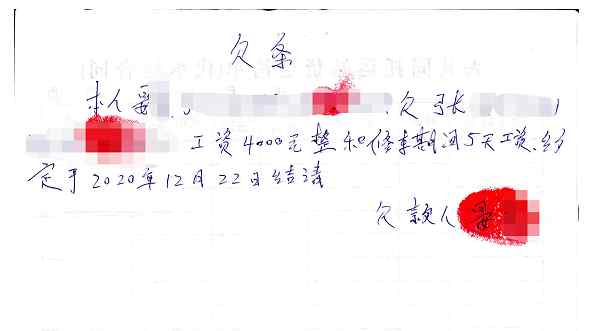 欠条
本人晏 欠张
工资4000元整和修车期间5天工资.约
定于2020年12月22日结清
欠款人晏